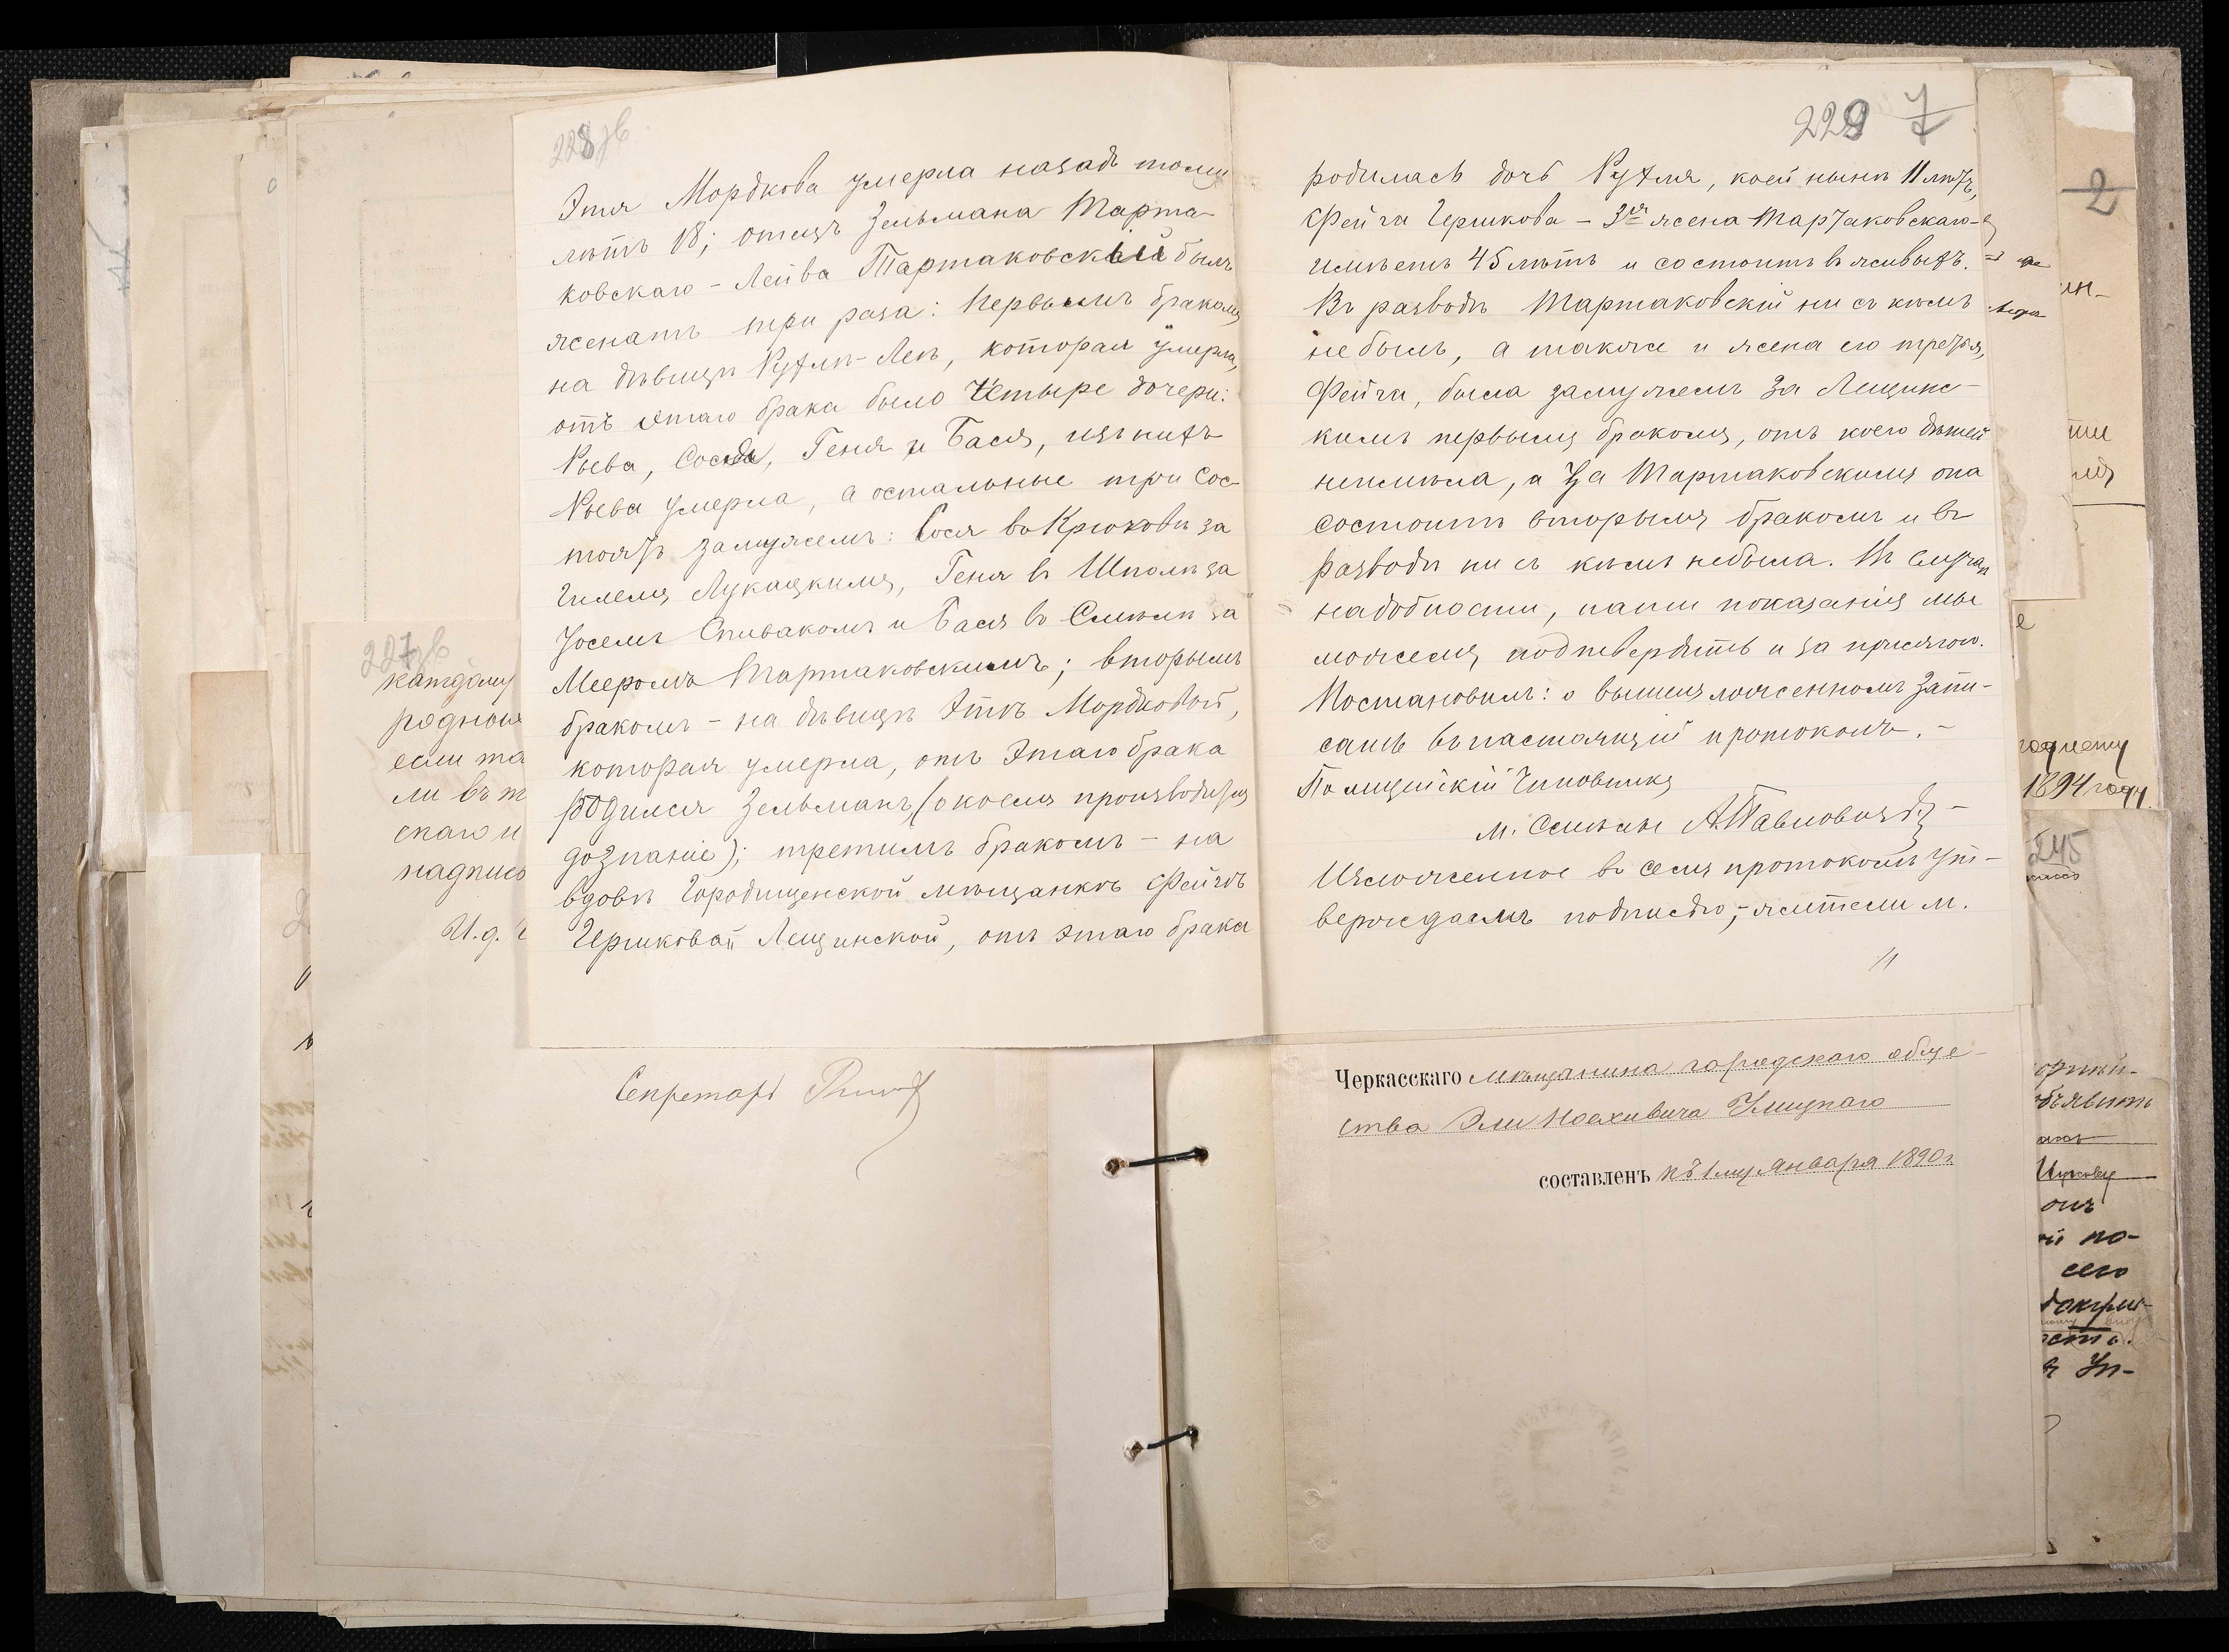 228 зв
Этя Мордкова умерла назадъ тому
лѣтъ 18; отецъ Зельмана Тарта-
ковскаго - Лейва Тартаковскій былъ
женатъ три раза: первымъ бракомъ
на дѣвицѣ Рухлѣ-Леѣ, которая умерла,
отъ этаго брака было четыре дочери:
Рыева, Сося, Геня и Бася, изъ нихъ
Рыева умерла, а остальные три сос-
тоятъ замужемъ: Сося въ Крюковѣ за
Гилемъ Лукацкимъ, Геня въ Шполѣ за
Іоселъ Спивакомъ и Бася въ Смѣлѣ за
Мееромъ Тартаковскимъ; вторымъ
бракомъ - на дѣвицѣ Эткѣ Мордковой,
которая умерла, отъ этаго брака
родился Зельманъ, (о коемъ производится
дознаніе); третимъ бракомъ - на
вдовѣ Городищенской мѣщанкѣ Фейгѣ
Гершковой Лещинской, отъ этаго брака
229 7
родилась дочь Рухля, коей нынѣ 11 лѣтъ,
Фейга Гершкова - 3я жена Тартаковскаго -
имѣетъ 45 лѣтъ и состоитъ въ живыхъ.
Въ разводѣ Тартаковскій ни съ кѣмъ
не былъ, а также и жена его третья,
Фейга, была замужемъ за Лещинс-
кимъ первымъ бракомъ, отъ коего дѣтей
неимѣла, а за Тартаковскимъ она
состоитъ вторымъ бракомъ и въ
разводѣ ни съ кѣмъ небыла. Въ случаѣ
надобности, наши показанія мы
можемъ подтвердить и за присягою.
Постановилъ: о вышеизложенномъ запи-
сать въ настоящій протоколъ. -
Полицейскій Чиновникъ
м. Смѣлы А. Павловичъ
Изложенное въ семъ протоколѣ ут-
верждаемъ подписью; - жители м.
227 зв
каждому
родной
если та
ли въ т
скаго и
надпис
И. д.
Секретарь
Черкасскаго мѣщанина городскаго обще-
ства Эли Ноаховича Улицкаго
составленъ къ 1му Января 1890 г.
2
ин-
1894 году.
245
объявить
по-
сего
докуме-
Уп-